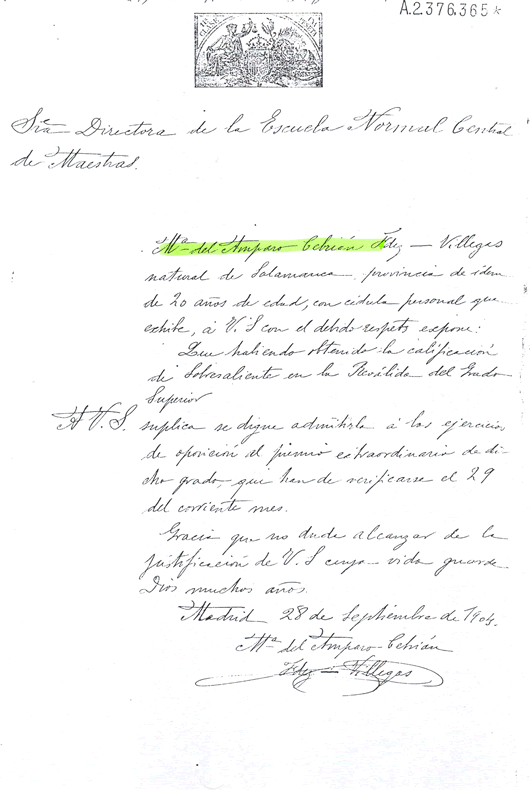 A.2.376.365*
Sra Directora de la Escuela Normal Central
de Maestras.
Mª del Amparo Cebrián Fdez — Villegas
natural de Salamanca provincia de idem
de 20 años de edad, con cédula personal que
exhibe, á V. S con el debido respeto expone:
Que habiendo obtenido la calificación
de Sobresaliente en la Reválida del Grado
Superior
A V. S. suplica se digne admitirla á los ejercicios
de oposición al premio extraordinario de di-
cho grado, que han de verificarse el 29
del corriente mes.
Gracia que no duda alcanzar de la
justificación de V. S cuya vida guarde
Dios muchos años.
Madrid 28 de Septiembre de 1904.
Mª del Amparo Cebrián
Fdez — Villegas